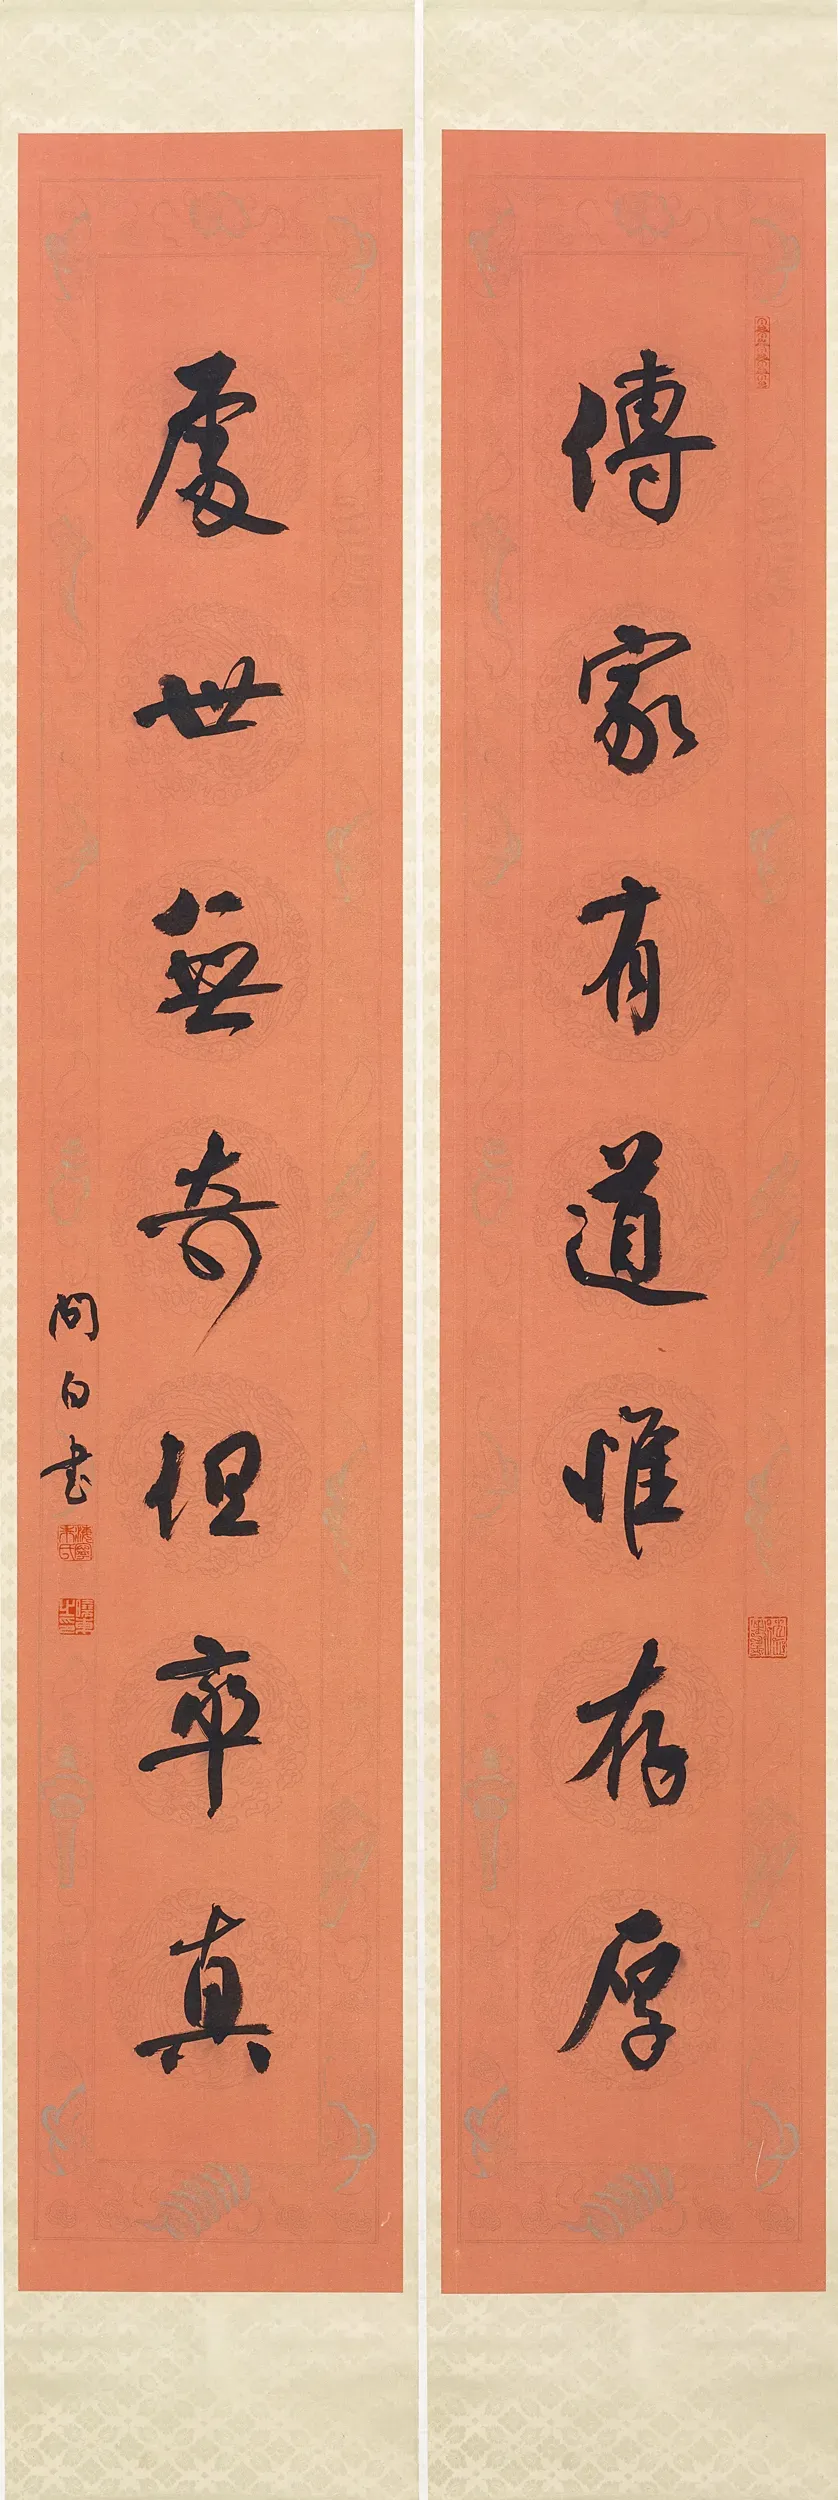 傳家有道惟存厚
處世無奇但率真
問白书